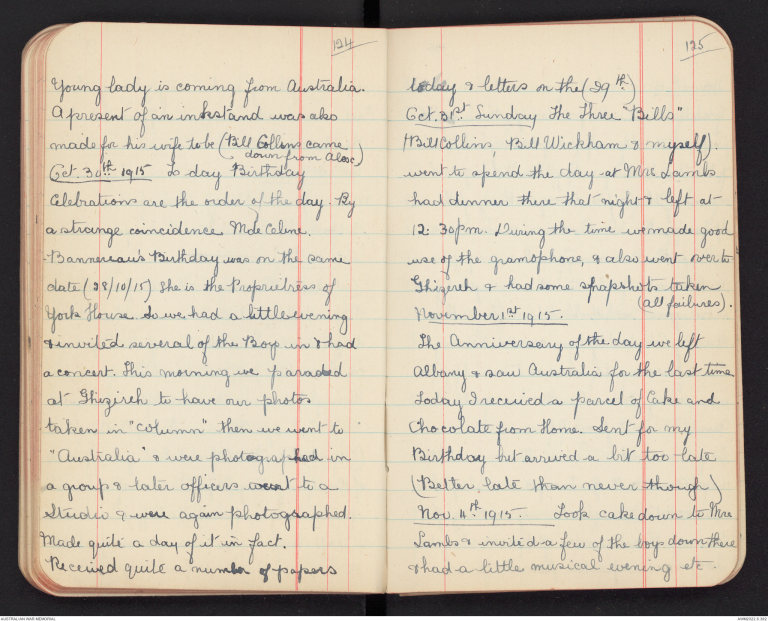 124
Young lady is coming from Australia.
A present of an inkstand was also
made for his wife to be (Bill Collins came
down from Alex)
Oct. 30th 1915 To day Birthday
Celebrations are the order of the day. By
a strange coincidence Mde Celine.
Bannereau's Birthday was on the same
date (28/10/15) She is the Proprietress of
York House. So we had a little evening
& invited several of the Boys in & had
a concert. This morning we paraded
at Ghizireh to have our photos
taken in "column" then we went to
"Australia" & were photographed in
a group & later officers went to a
Studio & were again photographed.
Made quite a day of it in fact.
Received quite a number of papers
125
today & letters on the (29th)
Oct. 31st Sunday The Three "Bills"
(Bill Collins, Bill Wickham & myself).
went to spend the day at Mrs Lambs
had dinner there that night & left at
12: 30pm. During the time we made good
use of the gramophone, & also went over to
Ghizereh & had some snapshots taken
(all failures).
November 1st 1915.
The Anniversary of the day we left
Albany & saw Australia for the last time
Today I received a parcel of Cake and
Chocolate from Home. Sent for my
Birthday but arrived a bit too late
(Better late than never though)
Nov. 4th 1915. Took cake down to Mrs
Lambs & invited a few of the boys down there
& had a little musical evening etc.
AUSTRALIAN WAR MEMORIAL